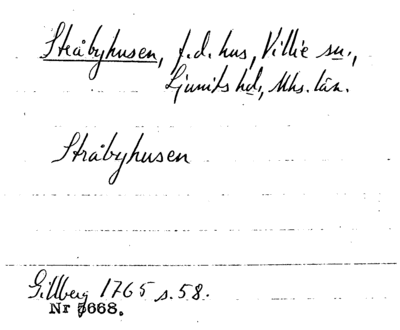 Stråbyhusen, f.d. hus, Villie sn.,
Ljunits hd., Mhs. län.
Stråbyhusen
Gillberg 1765 s. 58.
Nr 5668.